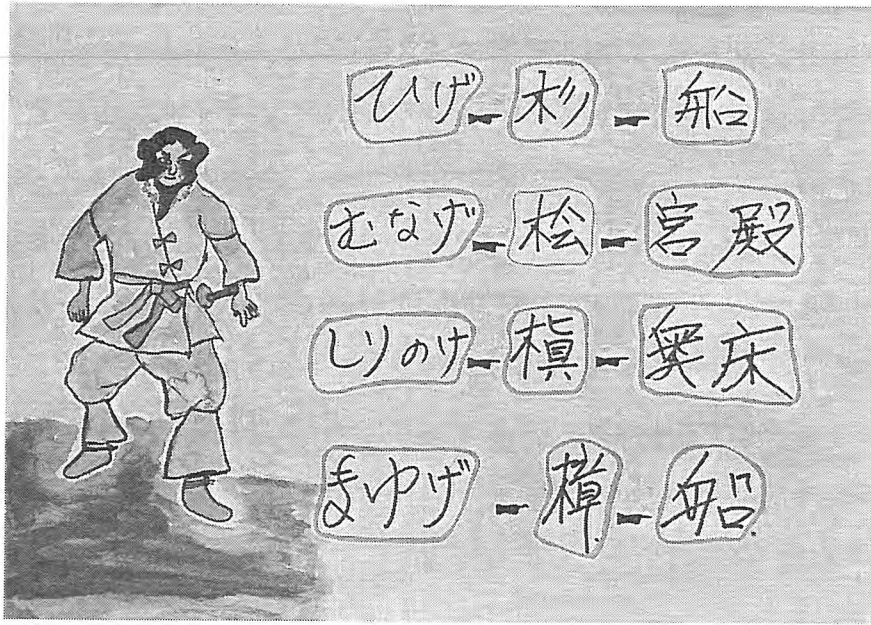 ひげ-杉-船
むなげ-桧-宮殿
しりのけ-槇-奥床
まゆげ-樟-船